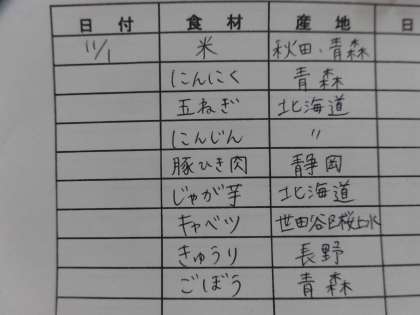 日付 食材 産地 日
11/1 米 秋田、青森
にんにく 青森
玉ねぎ 北海道
にんじん 〃
豚ひき肉 静岡
じゃが芋 北海道
キャベツ 世田谷区桜上水
きゅうり 長野
ごぼう 青森